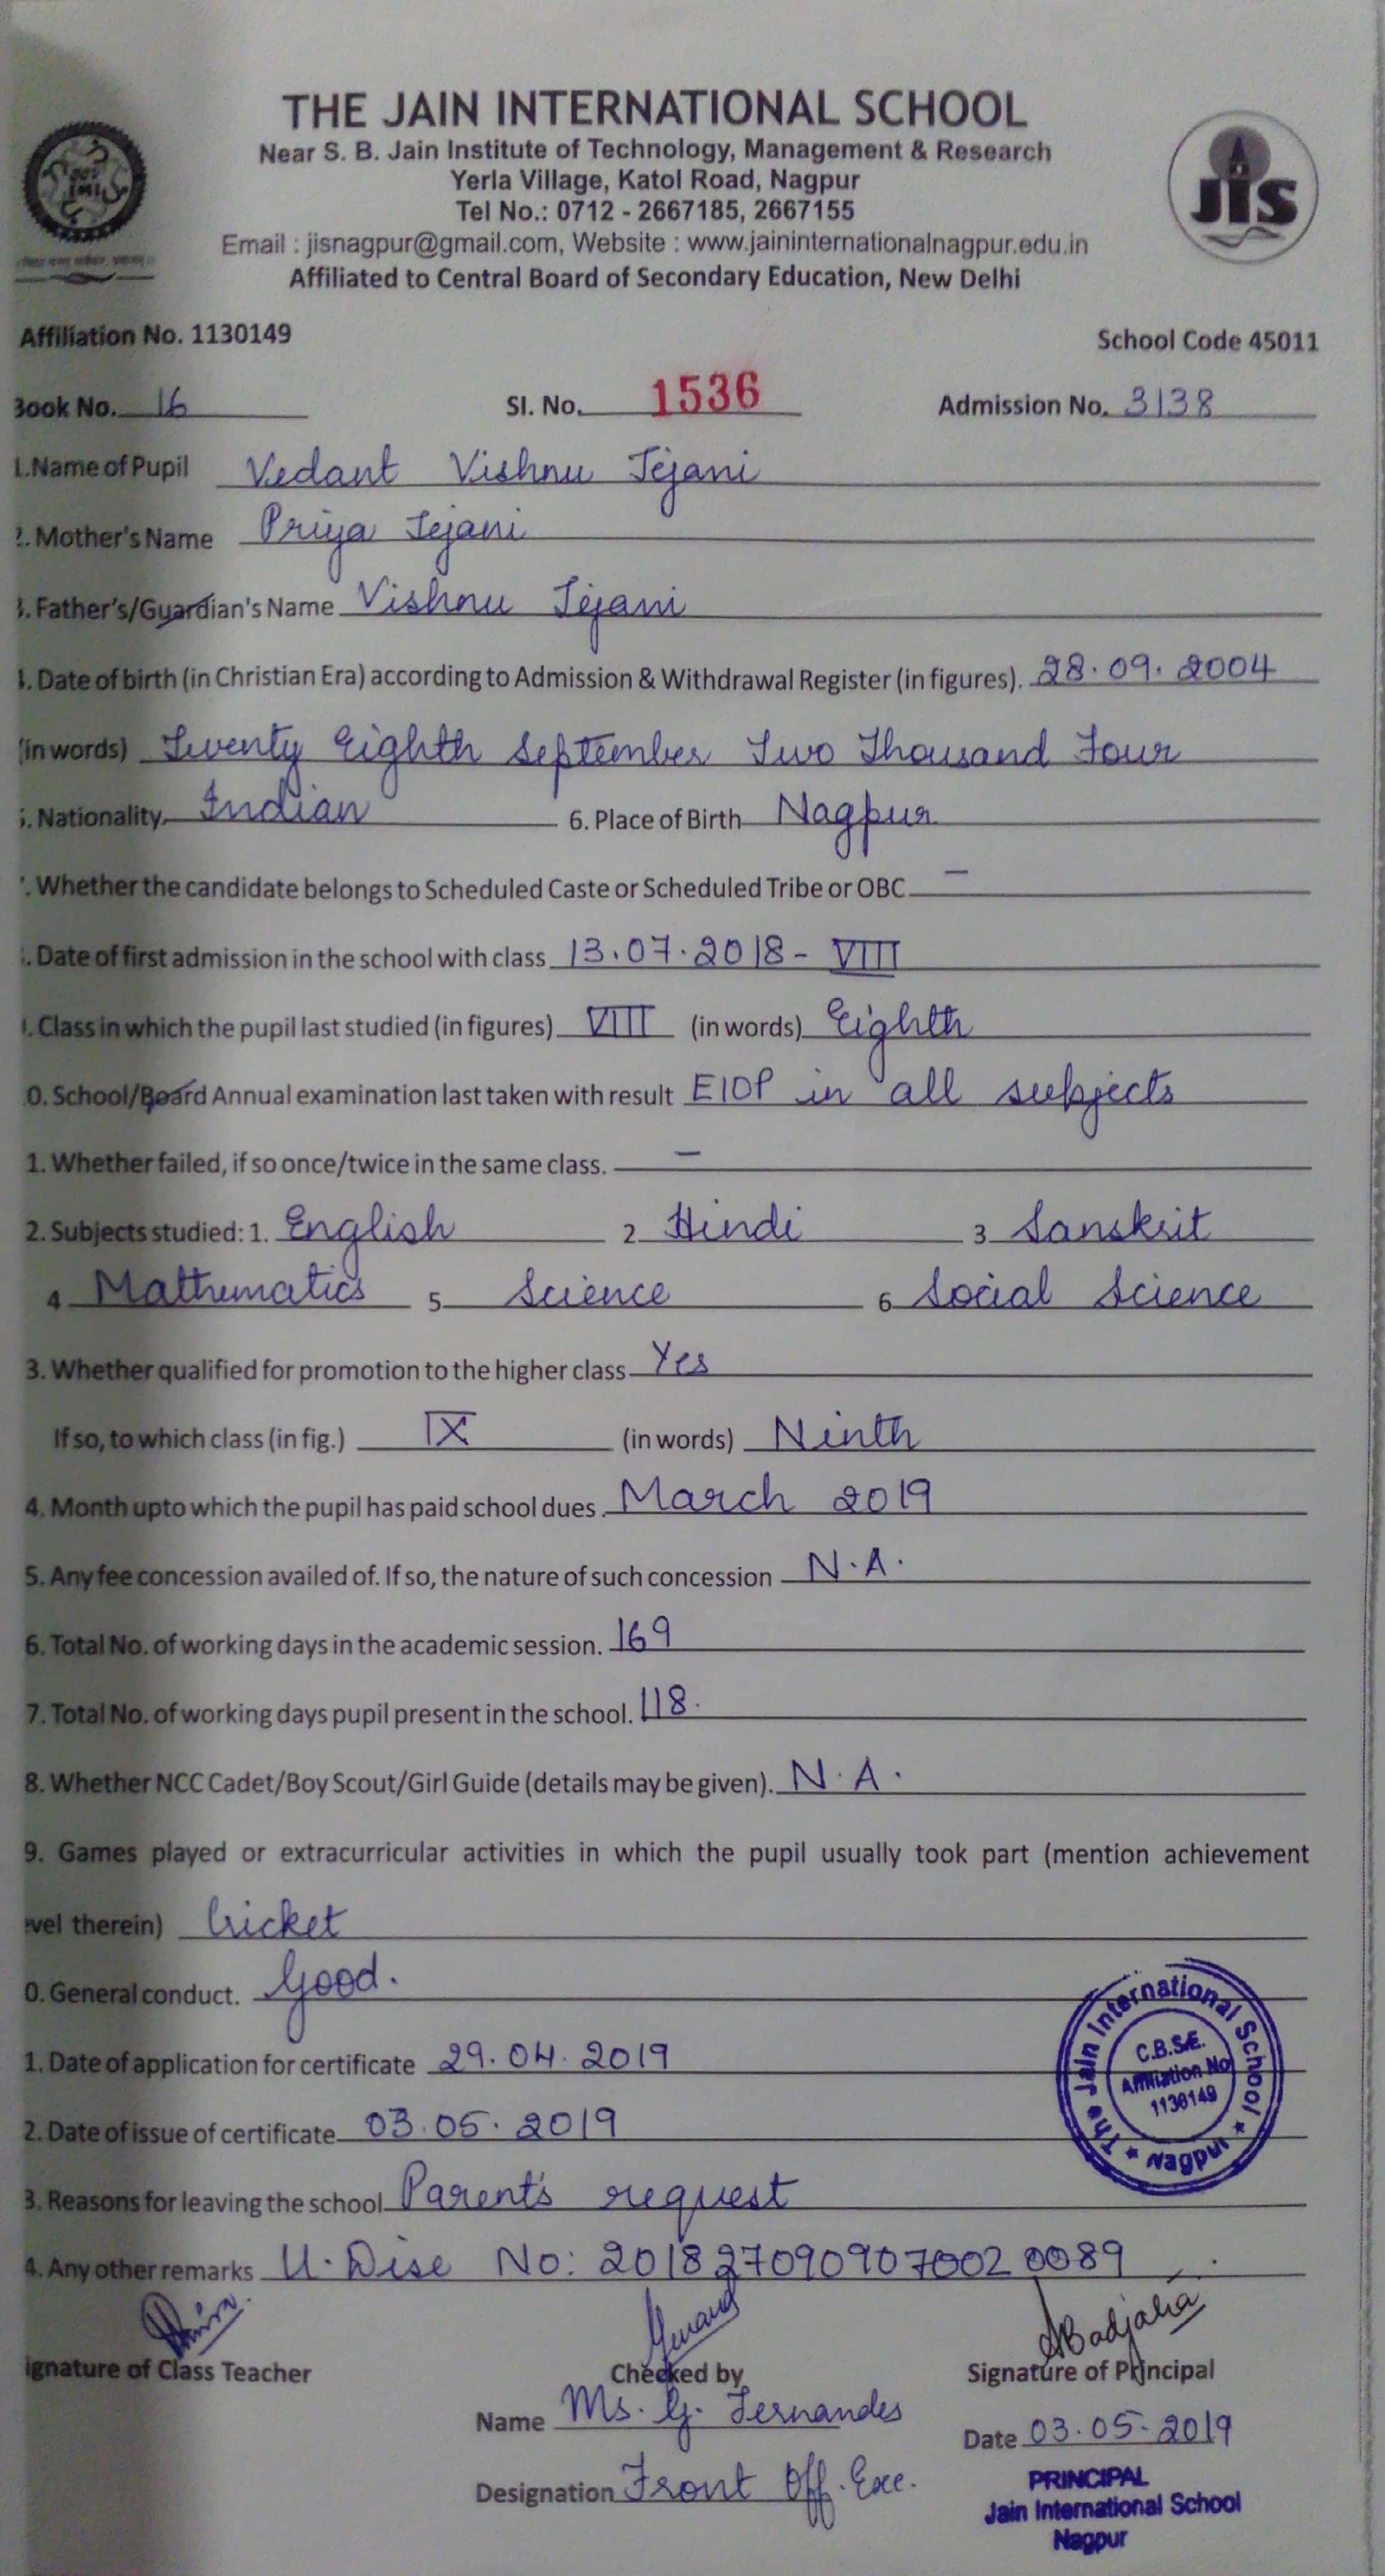 THE JAIN INTERNATIONAL SCHOOL
Near S. B. Jain Institute of Technology, Management & Research
Yerla Village, Katol Road, Nagpur
Tel No.: 0712 - 2667185, 2667155
Email : jisnagpur@gmail.com, Website : www.jaininternationalnagpur.edu.in
Affiliated to Central Board of Secondary Education, New Delhi
JIS
Affiliation No. 1130149 School Code 45011
Book No. 16 Sl. No. 1536 Admission No. 3138
1. Name of Pupil Vedant Vishnu Tejani
2. Mother's Name Priya Tejani
3. Father's/Guardian's Name Vishnu Tejani
4. Date of birth (in Christian Era) according to Admission & Withdrawal Register (in figures). 28.09.2004
(in words) Twenty Eighth September Two Thousand Four
5. Nationality Indian 6. Place of Birth Nagpur
7. Whether the candidate belongs to Scheduled Caste or Scheduled Tribe or OBC –
8. Date of first admission in the school with class 13.07.2018 - VIII
9. Class in which the pupil last studied (in figures) VIII (in words) Eighth
0. School/Board Annual examination last taken with result EIOP in all subjects
1. Whether failed, if so once/twice in the same class. –
2. Subjects studied: 1. English 2 Hindi 3 Sanskrit
4 Mathematics 5 Science 6 Social Science
3. Whether qualified for promotion to the higher class Yes
If so, to which class (in fig.) IX (in words) Ninth
4. Month upto which the pupil has paid school dues. March 2019
5. Any fee concession availed of. If so, the nature of such concession N.A.
6. Total No. of working days in the academic session. 169
7. Total No. of working days pupil present in the school. 118.
8. Whether NCC Cadet/Boy Scout/Girl Guide (details may be given). N.A.
9. Games played or extracurricular activities in which the pupil usually took part (mention achievement
vel therein) Cricket
0. General conduct. Good.
1. Date of application for certificate 29.04.2019
2. Date of issue of certificate 03.05.2019
3. Reasons for leaving the school Parent's request
4. Any other remarks U.Dise No: 2018270909070020089
The Jain International School * Nagpur *
C.B.S.E.
Affiliation No
1130149
ignature of Class Teacher Checked by Signature of Principal
Name Ms. G. Fernandes Date 03.05.2019
Designation Front Off. Exe.
PRINCIPAL
Jain International School
Nagpur